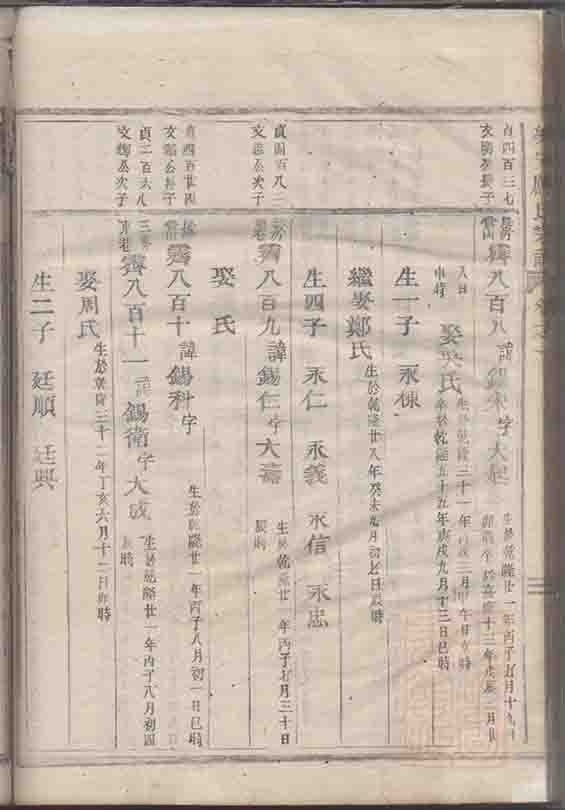 貞四百三七
文 公長子
霽八百八 諱錫 字大起 生於乾隆廿一年丙子七月十九
時 卒於嘉慶十三年戊辰二月廿
八日 時
娶吳氏 生於乾隆三十一年丙戌三月 午時
卒於乾隆五十五年庚戌九月十三日巳時
生一子 永棟
繼娶鄭氏 生於乾隆廿八年癸未 月初七日辰時
生四子 永仁 永義 永信 永忠
貞四百八二
文 公次子
霽八百九 諱錫仁 字大壽 生於乾隆廿一年丙子七月三十日
辰時
娶 氏
貞四百廿四
文 公 子
霽八百十 諱錫科 字 生於乾隆廿一年丙子八月初一日巳時
貞二百六八
文 公次子
霽八百十一 諱錫衛 字大成 生於乾隆廿一年丙子八月初四
辰時
娶周氏 生於乾隆三十二年丁亥六月十二日卯時
生二子 廷順 廷興